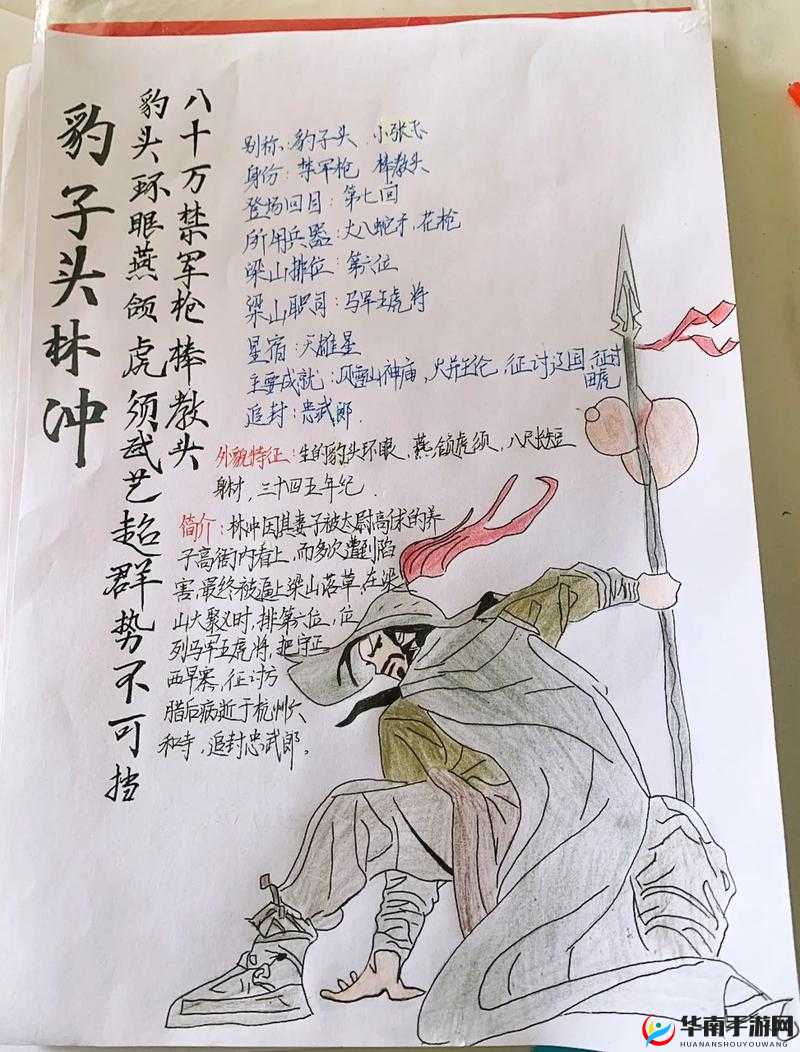 八十万禁军枪棒教头
豹头环眼燕颌虎须武艺超群势不可挡
豹子头林冲
别称：豹子头 小张飞
身份：禁军枪 棒教头
登场回目：第七回
所用兵器：丈八蛇矛，花枪
梁山排位：第六位
梁山职司：马军五虎将
星宿：天雄星
主要成就：风雪山神庙，火并王伦，征讨辽国，征讨
田虎
追封：忠武郎.
外貌特征：生的豹头环眼，燕颌虎须，八尺长短
身材，三十四五年纪.
简介：林冲因其妻子被太尉高俅的养
子高衙内看上，而多次遭到陷
害，最终被逼上梁山落草，在梁
山大聚义时，排第六位，位
列马军五虎将，把守正
西旱寨，征讨方
腊后病逝于杭州六
和寺，追封忠武郎。
华南手游网
HUANANSHOUYOUWANG